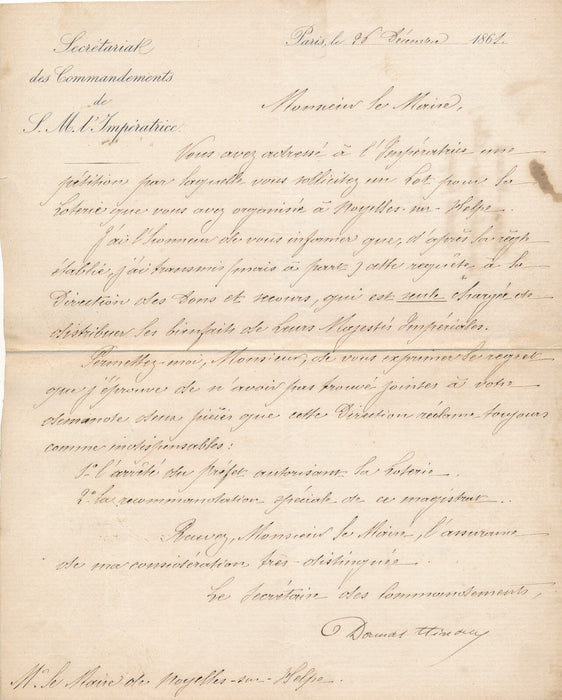 Secrétariat
des Commandements
de
S. M. l'Impératrice.
Paris, le 26 Décembre 1861.
Monsieur le Maire,
Vous avez adressé à l'Impératrice une
pétition par laquelle vous sollicitez un Lot pour la
Loterie que vous avez organisée à Noyelles-sur-Helpe.
J'ai l'honneur de vous informer que, d'après la règle
établie, j'ai transmis (mais à part) cette requête à la
Direction des Dons et secours, qui est seule chargée de
distribuer les bienfaits de Leurs Majestés Impériales.
Permettez-moi, Monsieur, de vous exprimer le regret
que j'éprouve de n'avoir pas trouvé jointes à votre
demande deux pièces que cette Direction réclame toujours
comme indispensables:
1º l'arrêté du Préfet autorisant la Loterie.
2º la recommandation spéciale de ce magistrat.
Recevez, Monsieur le Maire, l'assurance
de ma considération très-distinguée.
Le Secrétaire des Commandements,
Damas Hinard
Mr. le Maire de Noyelles-sur-Helpe.